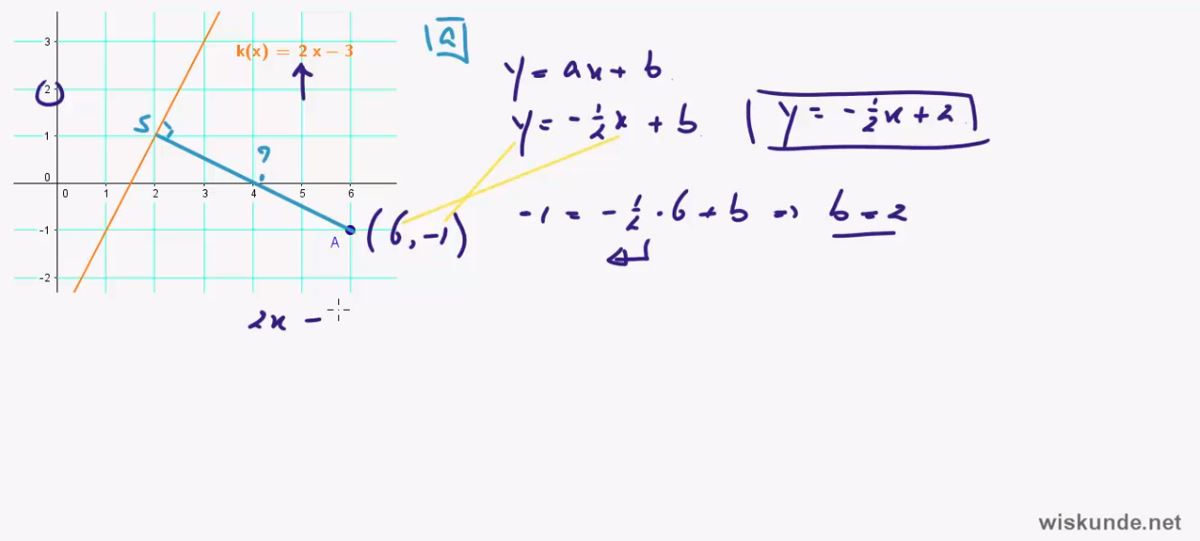 k(x) = 2 x – 3
3
2
1
0
-1
-2
0 1 2 3 4 5 6
S
?
A
(6, -1)
2x -
a
y = ax + b
y = -½x + b
y = -½x + 2
-1 = -½ · 6 + b => b = 2
wiskunde.net